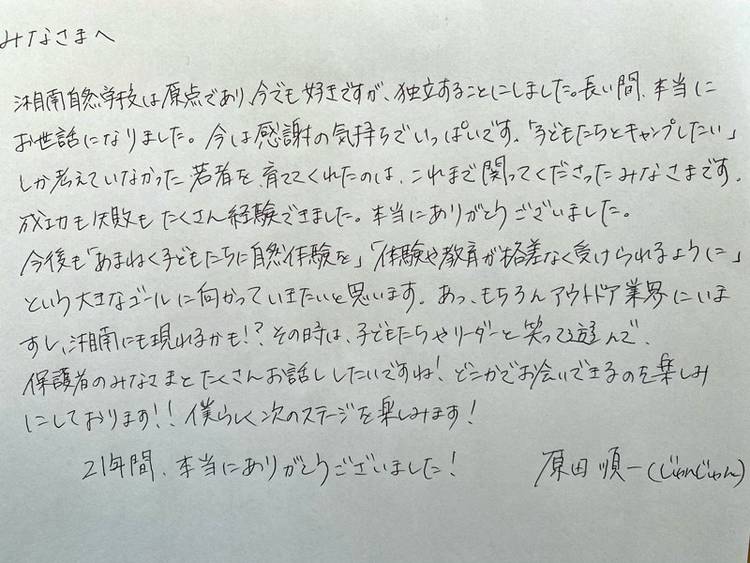 みなさまへ
湘南自然学校は原点であり、今でも好きですが、独立することにしました。長い間、本当に
お世話になりました。今は感謝の気持ちでいっぱいです。「子どもたちとキャンプしたい」
しか考えていなかった若者を、育ててくれたのは、これまで関ってくださったみなさまです。
成功も失敗もたくさん経験できました。本当にありがとうございました。
今後も「あまねく子どもたちに自然体験を」「体験や教育が格差なく受けられるように」
という大きなゴールに向かっていきたいと思います。あっ、もちろんアウトドア業界にいま
すし、湘南にも現れるかも!?その時は、子どもたちやリーダーと笑って遊んで、
保護者のみなさまとたくさんお話ししたいですね!どこかでお会いできるのを楽しみ
にしております!!僕らしく次のステージを楽しみます!
21年間、本当にありがとうございました! 原田順一(じゅんじゅん)